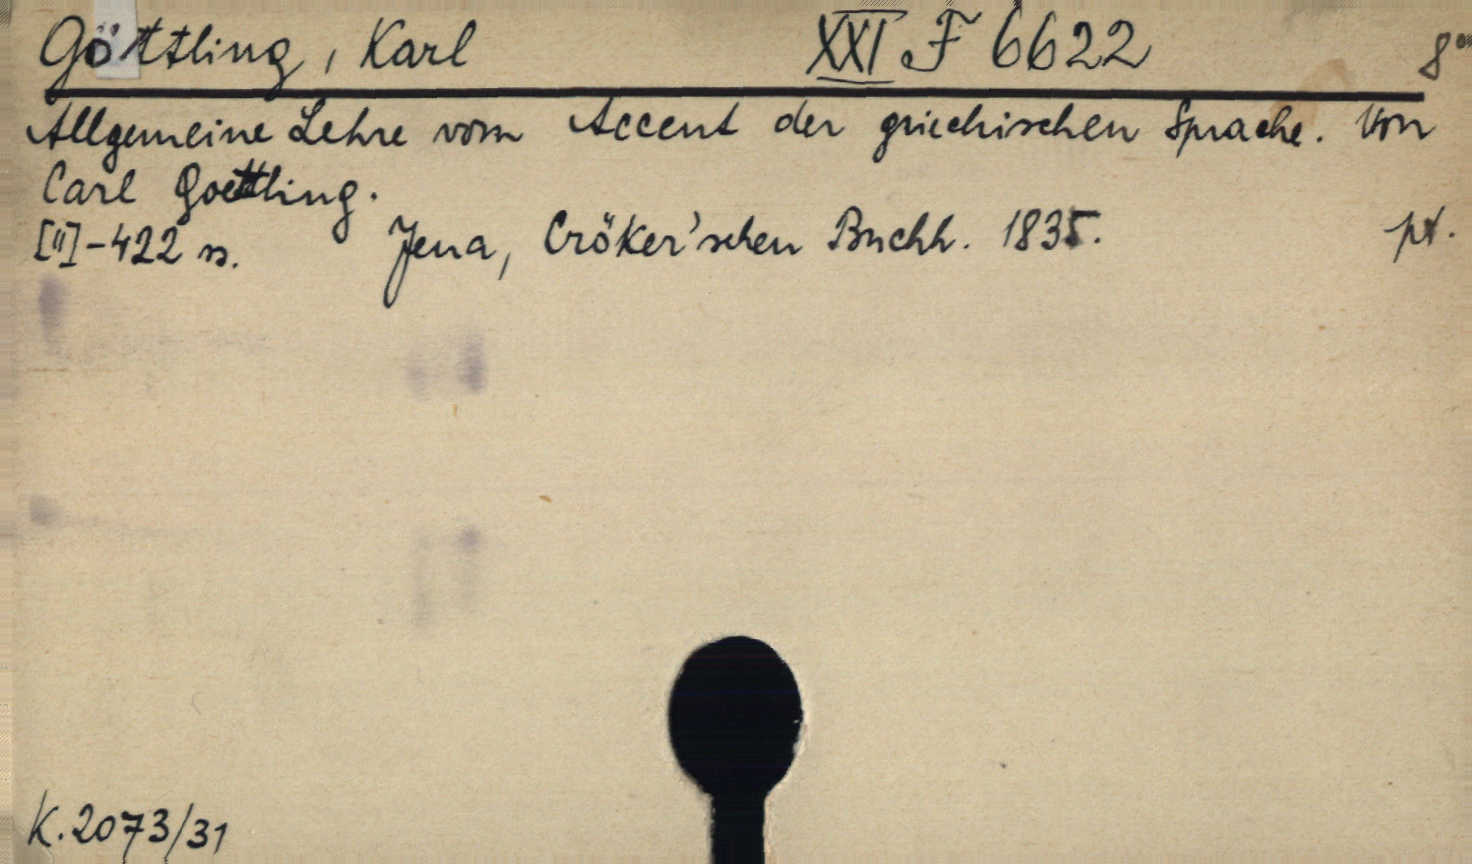 Göttling, Karl XXI F 6622 8°
Allgemeine Lehre vom Accent der griechischen Sprache. Von
Carl Goettling.
[II]-422 s. Jena, Cröker'schen Buchh. 1835. pt.
K.2073/31